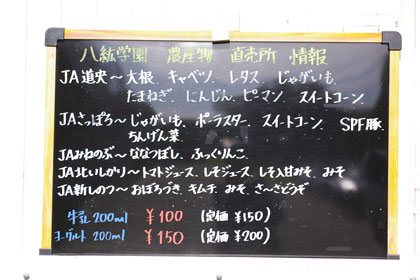 八紘学園 農産物 直売所 情報
JA道央～大根、キャベツ、レタス、じゃがいも、
たまねぎ、にんじん、ピーマン、スイートコーン、
JAさっぽろ～じゃがいも、ポーラスター、スイートコーン、SPF豚、
ちんげん菜
JAみねのぶ～ななつぼし、ふっくりんこ、
JA北いしかり～トマトジュース、しそジュース、しそ入甘みそ、みそ
JA新しのつ～おぼろづき、キムチ、みそ、さ～さどうぞ
牛乳 200ml ￥100 (定価 ￥150)
ヨーグルト 200ml ￥150 (定価 ￥200)